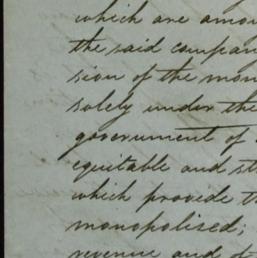 which are amon
the said compan
sion of the mon
solely under the
government of
equitable and st
which provide th
monopolised;
revenue and of